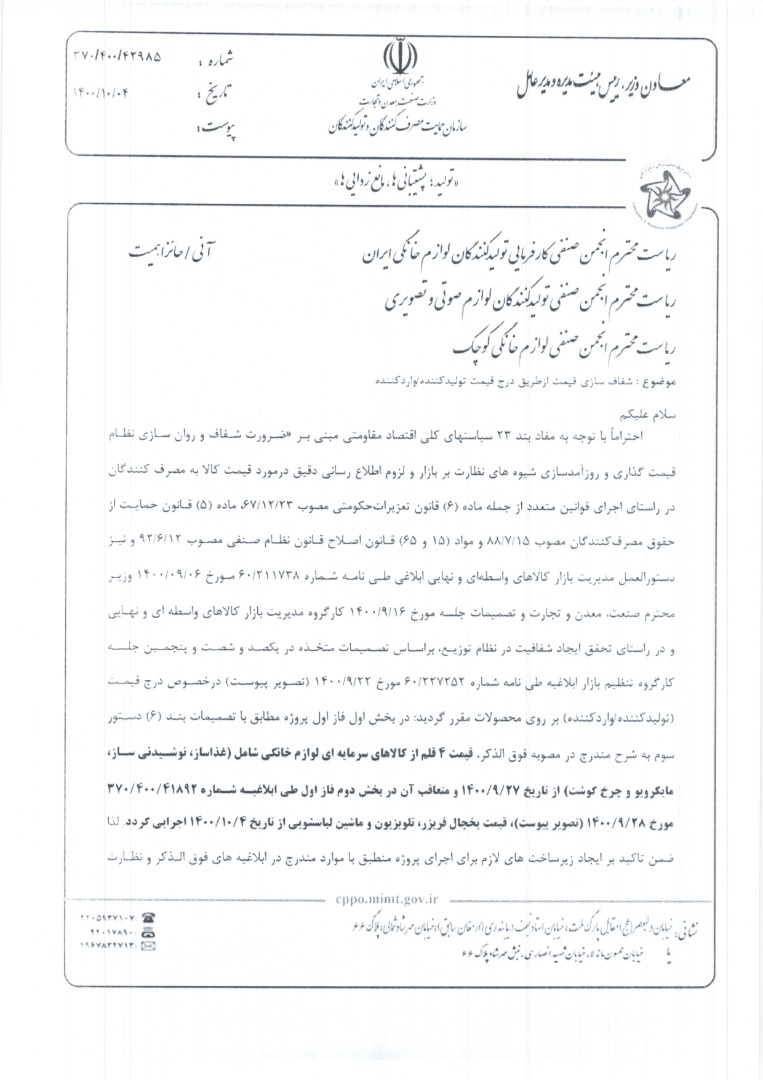 معاون وزیر، رییس هیئت مدیره و مدیر عامل
جمهوری اسلامی ایران
وزارت صنعت، معدن و تجارت
سازمان حمایت مصرف کنندگان و تولیدکنندگان
شماره : ۳۷۰/۴۰۰/۴۲۹۸۵
تاریخ : ۱۴۰۰/۱۰/۰۴
پیوست:
«تولید؛ پشتیبانی ها، مانع زدایی ها»
ریاست محترم انجمن صنفی کارفرمایی تولیدکنندگان لوازم خانگی ایران
آنی/حائز اهمیت
ریاست محترم انجمن صنفی تولیدکنندگان لوازم صوتی و تصویری
ریاست محترم انجمن صنفی لوازم خانگی کوچک
موضوع : شفاف سازی قیمت ازطریق درج قیمت تولیدکننده/واردکننده
سلام علیکم
احتراماً با توجه به مفاد بند ۲۳ سیاستهای کلی اقتصاد مقاومتی مبنی بر «ضرورت شفاف و روان سازی نظام
قیمت گذاری و روزآمدسازی شیوه های نظارت بر بازار و لزوم اطلاع رسانی دقیق درمورد قیمت کالا به مصرف کنندگان
در راستای اجرای قوانین متعدد از جمله ماده (۶) قانون تعزیرات‌حکومتی مصوب ۶۷/۱۲/۲۳، ماده (۵) قانون حمایت از
حقوق مصرف‌کنندگان مصوب ۸۸/۷/۱۵ و مواد (۱۵ و ۶۵) قانون اصلاح قانون نظام صنفی مصوب ۹۲/۶/۱۲ و نیز
دستورالعمل مدیریت بازار کالاهای واسطه‌ای و نهایی ابلاغی طی نامه شماره ۶۰/۲۱۱۷۳۸ مورخ ۱۴۰۰/۰۹/۰۶ وزیر
محترم صنعت، معدن و تجارت و تصمیمات جلسه مورخ ۱۴۰۰/۹/۱۶ کارگروه مدیریت بازار کالاهای واسطه ای و نهایی
و در راستای تحقق ایجاد شفافیت در نظام توزیع، براساس تصمیمات متخذه در یکصد و شصت و پنجمین جلسه
کارگروه تنظیم بازار ابلاغیه طی نامه شماره ۶۰/۲۲۷۲۵۲ مورخ ۱۴۰۰/۹/۲۲ (تصویر پیوست) درخصوص درج قیمت
(تولیدکننده/واردکننده) بر روی محصولات مقرر گردید: در بخش اول فاز اول پروژه مطابق با تصمیمات بند (۶) دستور
سوم به شرح مندرج در مصوبه فوق الذکر، قیمت ۴ قلم از کالاهای سرمایه ای لوازم خانگی شامل (غذاساز، نوشیدنی ساز،
مایکرویو و چرخ گوشت) از تاریخ ۱۴۰۰/۹/۲۷ و متعاقب آن در بخش دوم فاز اول طی ابلاغیه شماره ۳۷۰/۴۰۰/۴۱۸۹۲
مورخ ۱۴۰۰/۹/۲۸ (تصویر پیوست)، قیمت یخچال فریزر، تلویزیون و ماشین لباسشویی از تاریخ ۱۴۰۰/۱۰/۴ اجرایی گردد. لذا
ضمن تاکید بر ایجاد زیرساخت های لازم برای اجرای پروژه منطبق با موارد مندرج در ابلاغیه های فوق الذکر و نظارت
cppo.mimt.gov.ir
نشانی: خیابان ولیعصر(عج) مقابل پارک ملت، خیابان استاد نجات دریابندری (ارمغان سابق)، خیابان مهرشاد شمالی، پلاک ۶۶
یا خیابان نلسون ماندلا، خیابان شهید انصاری، نبش مهرشاد پلاک ۶۶
۲۲۰۵۹۳۷۱-۷
۲۲۰۱۷۸۹۰
۱۹۶۷۸۳۲۷۱۳